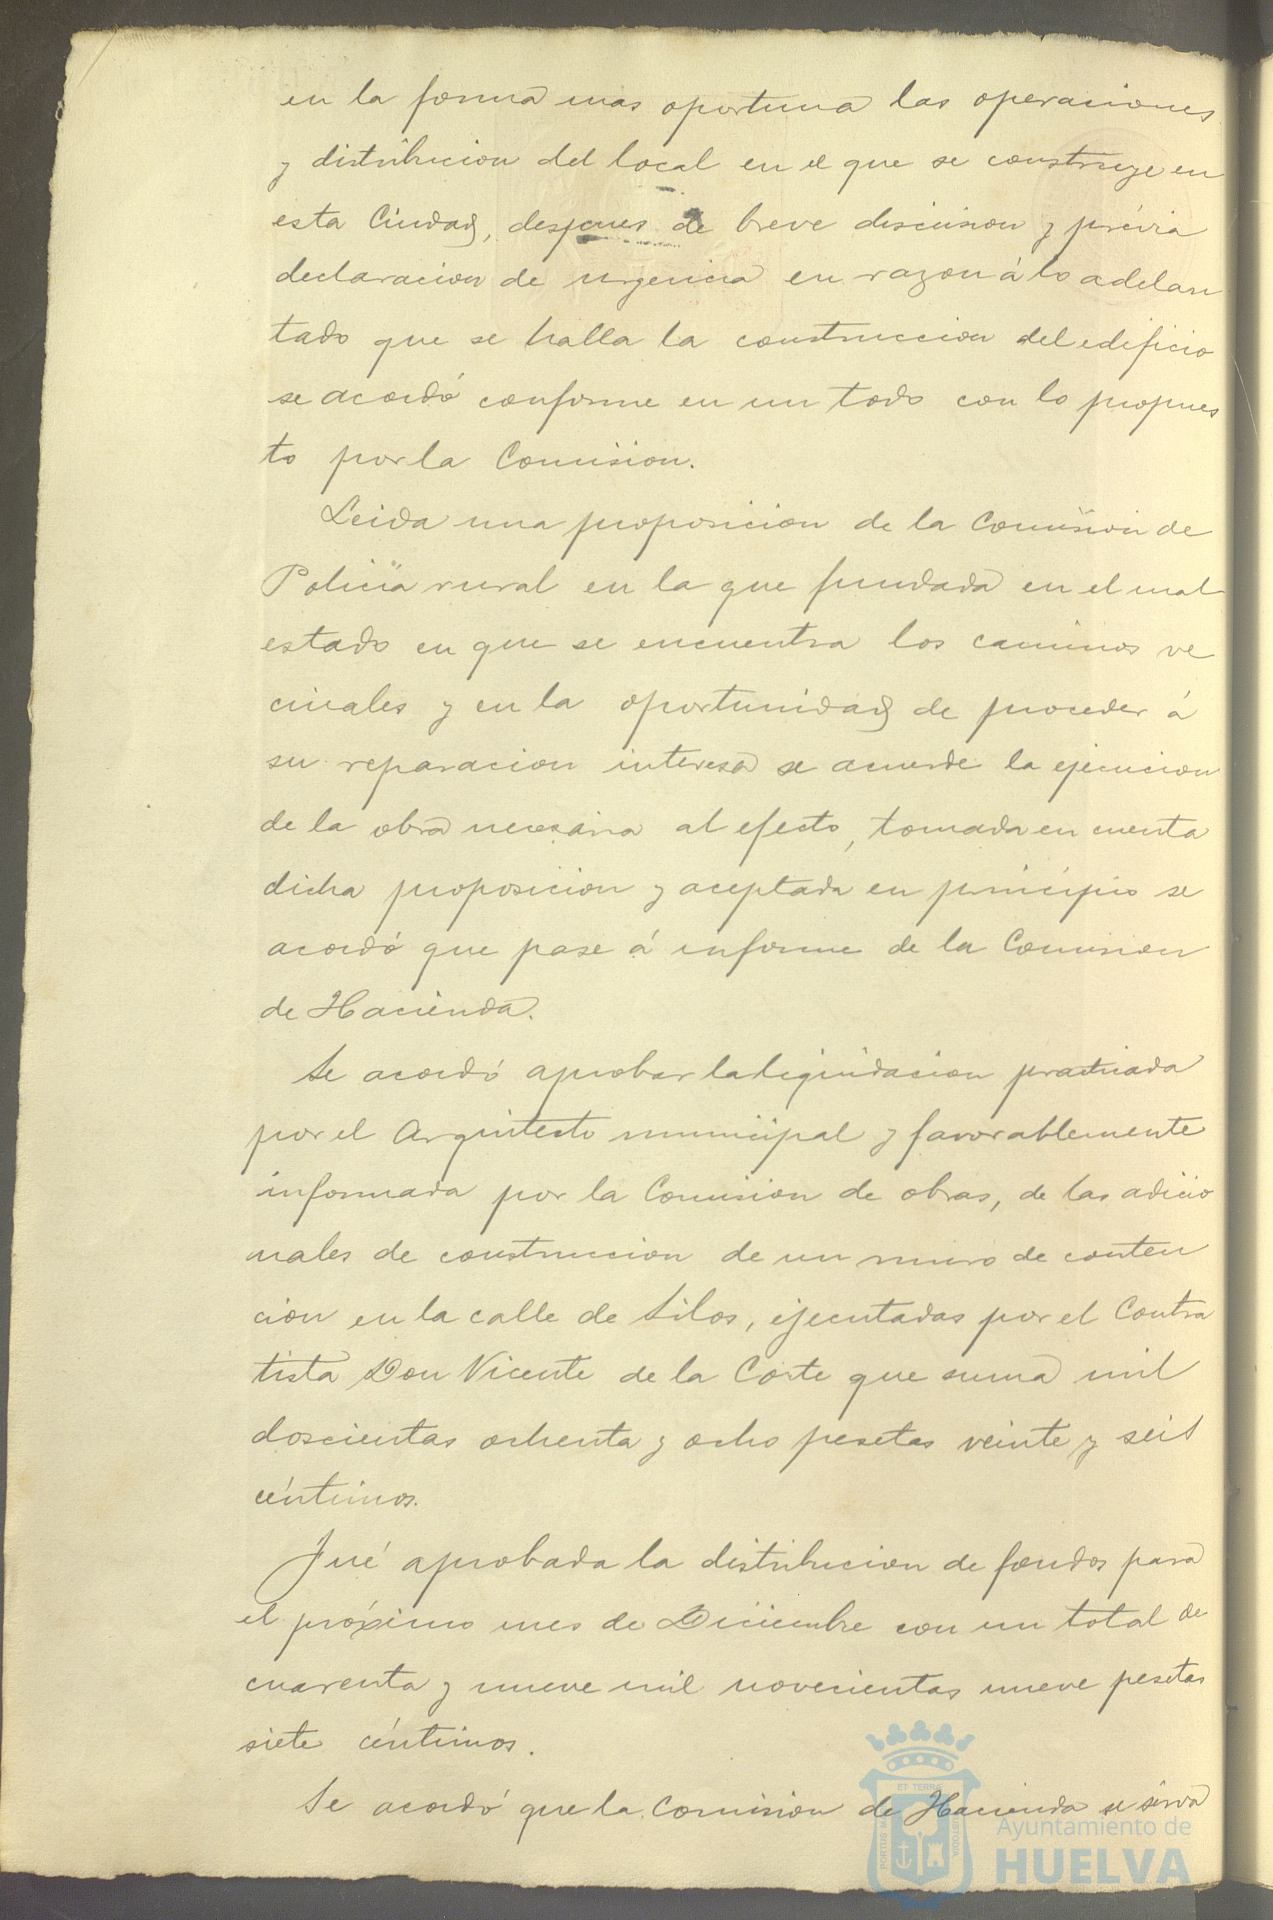 en la forma mas oportuna las operaciones
y distribucion del local en el que se construye en
esta Ciudad, despues de breve discusion y prévia
declaracion de urgencia en razon á lo adelan
tado que se halla la construccion del edificio
se acordó conforme en un todo con lo propues
to por la Comision.
Leida una proposicion de la Comision de
Policia rural en la que fundada en el mal
estado en que se encuentra los caminos ve
cinales y en la oportunidad de proceder á
su reparacion interesa se acuerde la ejecucion
de la obra necesaria al efecto, tomada en cuenta
dicha proposicion y aceptada en principio se
acordó que pase á informe de la Comision
de Hacienda.
Se acordó aprobar la liquidacion practicada
por el Arquitecto municipal y favorablemente
informada por la Comision de obras, de las adicio
nales de construccion de un muro de conten
cion en la calle de Silos, ejecutadas por el Contra
tista Don Vicente de la Corte que suma mil
doscientas ochenta y ocho pesetas veinte y seis
céntimos.
Fué aprobada la distribucion de fondos para
el próximo mes de Diciembre con un total de
cuarenta y nueve mil novecientas nueve pesetas
siete céntimos.
Se acordó que la Comision de Hacienda se sirva
Ayuntamiento de
HUELVA